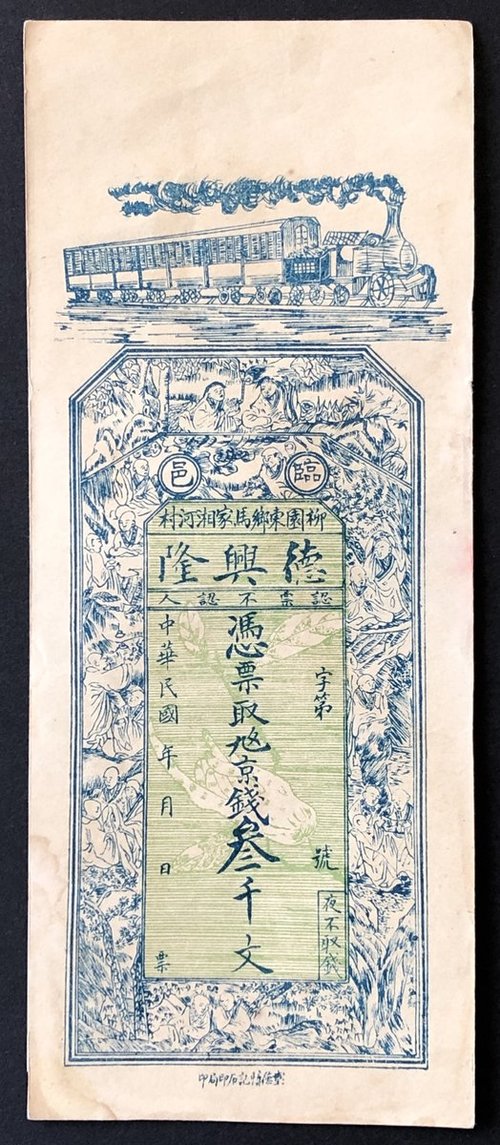 臨邑
柳園東鄉馬家湘河村
德興隆
認票不認人
字第 號
夜不取錢
憑票取京錢叁千文
中華民國 年 月 日 票
記石印局印